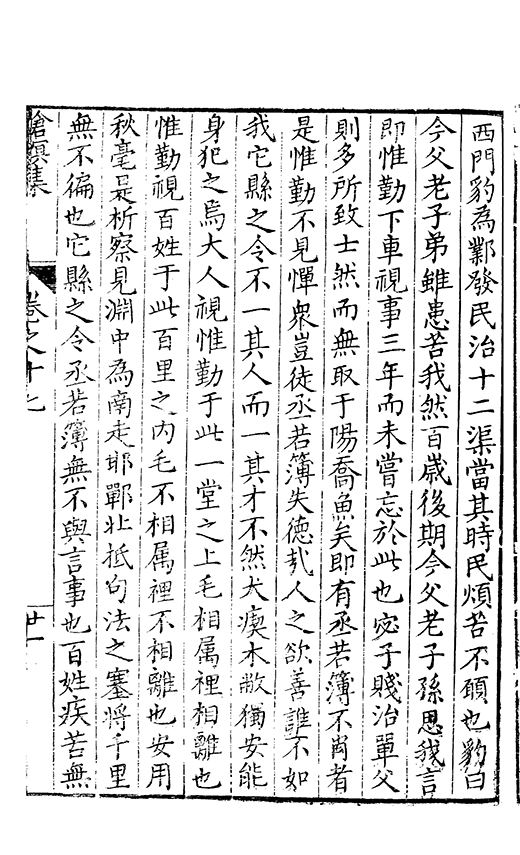 西門豹為鄴發民治十二渠當其時民煩苦不願也豹曰
今父老子弟雖患苦我然百歲後期令父老子孫思我言
即惟勤下車視事三年而未嘗忘於此也宓子賤治單父
則多所致士然而無取于陽喬魚矣即有丞若簿不肖者
是惟勤不見憚眾豈徒丞若簿失德㢤人之欲善誰不如
我它縣之令不一其人而一其才不然犬瘈木敝獨安能
身犯之焉大人視惟勤于此一堂之上毛相属裡相離也
惟勤視百姓于此百里之内毛不相属裡不相離也安用
秋毫是析察見淵中為南走邯鄲北抵句法之塞將千里
無不徧也它縣之令丞若簿無不與言事也百姓疾苦無
滄溟集
卷之十七
廿一